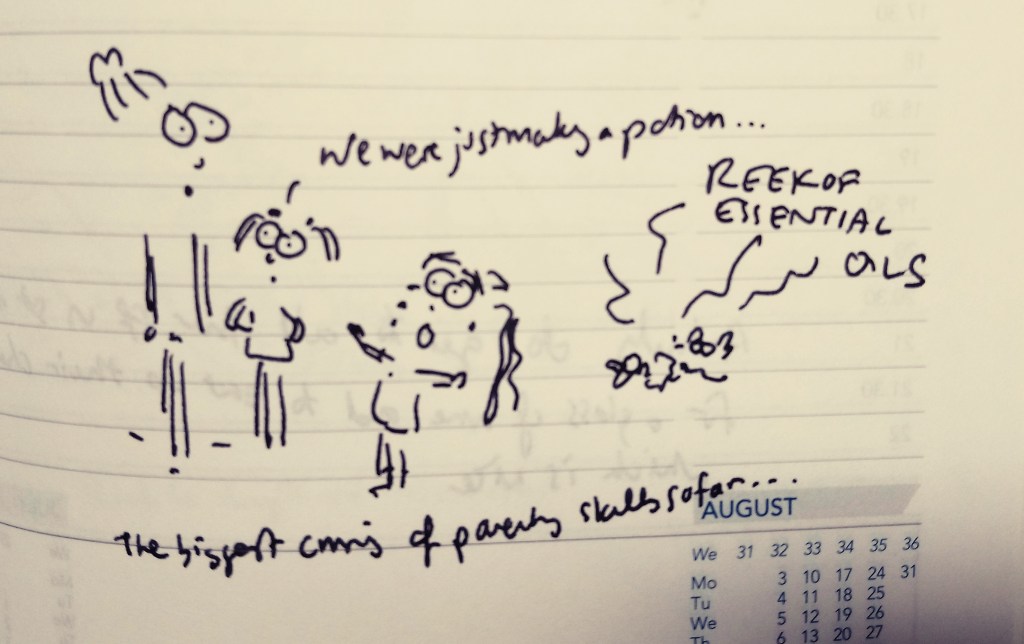 17.30
18
18.30
19
19.30
20
20.30
21
21.30
22
We were just making a potion...
REEK OF
ESSENTIAL
OILS
The biggest crisis of parenting skills so far...
AUGUST
We 31 32 33 34 35 36
Mo 3 10 17 24 31
Tu 4 11 18 25
We 5 12 19 26
Th 6 13 20 27